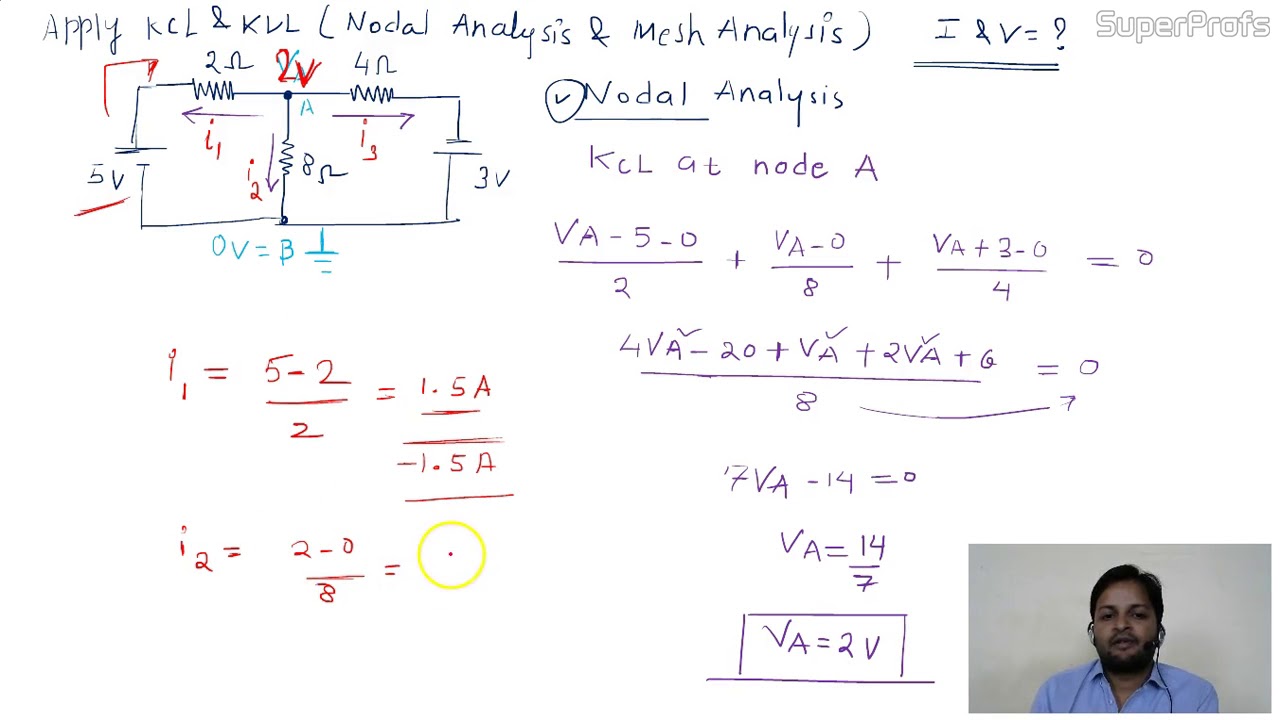 Apply KCL & KVL (Nodal Analysis & Mesh Analysis) I & V = ?
SuperProfs
2Ω 2V 4Ω
A
i1 i3
i2 8Ω
5V 3V
0V = B
Nodal Analysis
KCL at node A
(VA - 5 - 0)/2 + (VA - 0)/8 + (VA + 3 - 0)/4 = 0
(4VA - 20 + VA + 2VA + 6)/8 = 0
7VA - 14 = 0
VA = 14/7
VA = 2V
i1 = (5 - 2)/2 = 1.5A
-1.5A
i2 = (2 - 0)/8 =